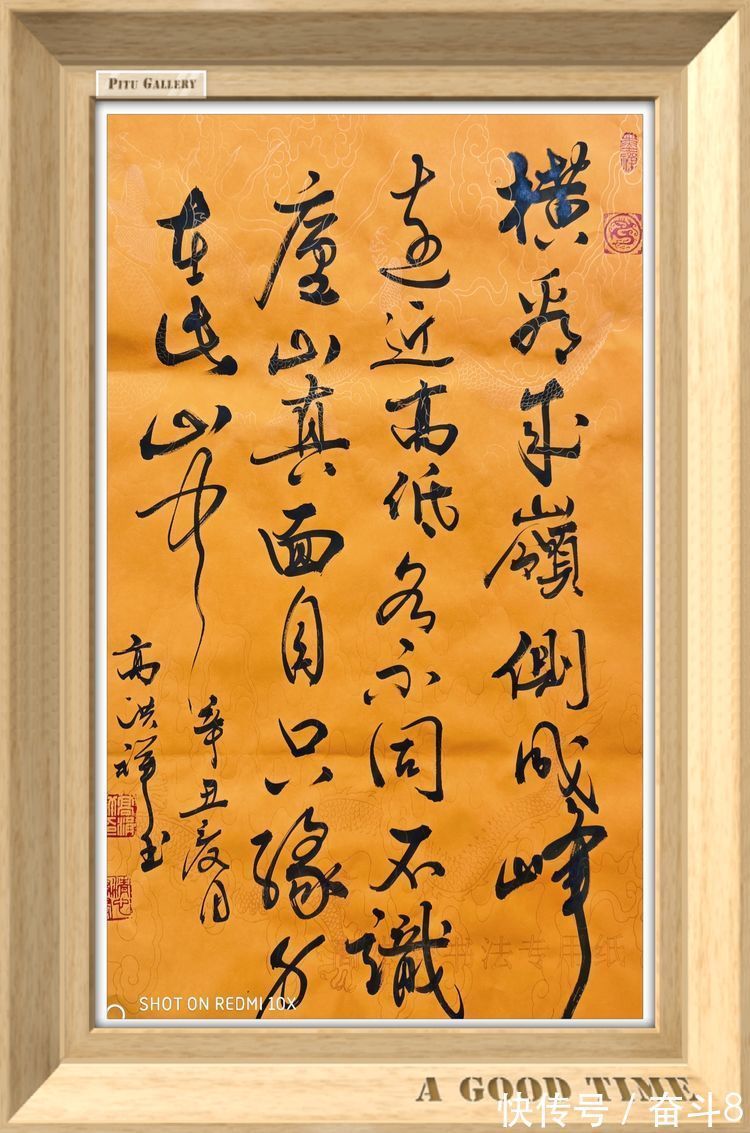 PITU GALLERY
横看成嶺側成峰
远近高低各不同不識
廬山真面目只緣身
在此山中
辛丑夏月
高洪祥
书法专用纸
SHOT ON REDMI 10X
A GOOD TIME
快传号 / 奋斗8